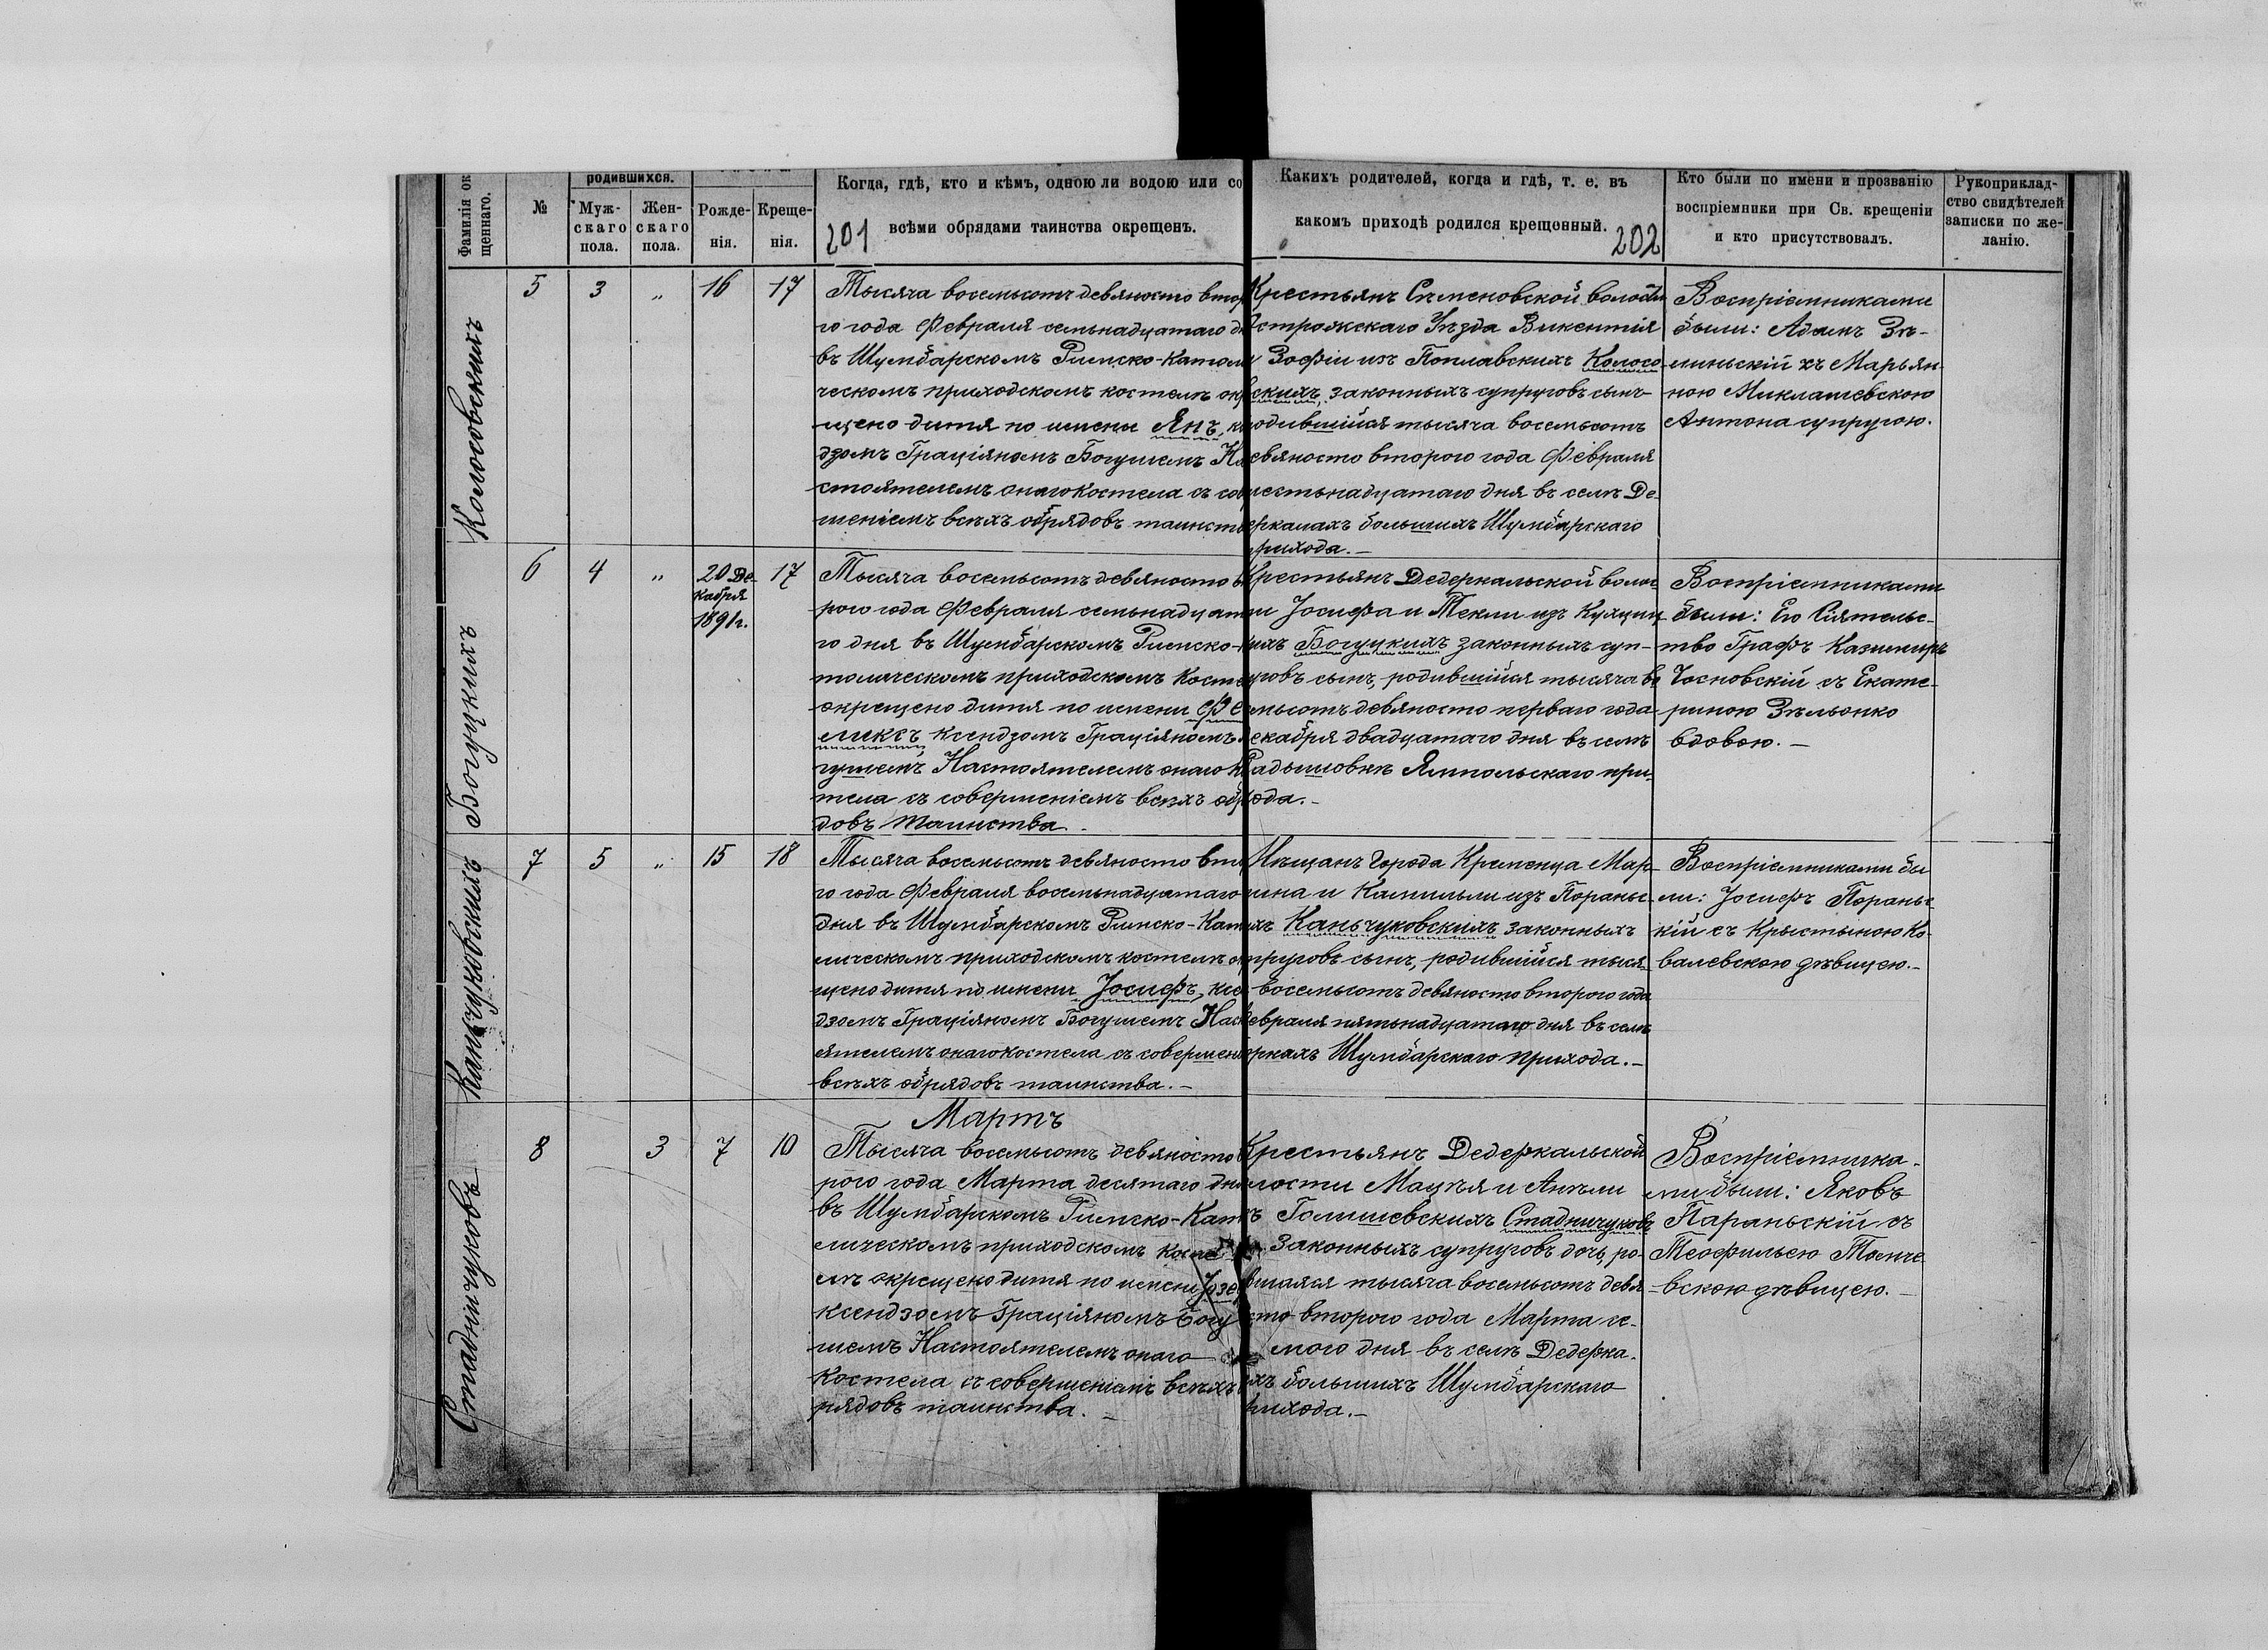 Фамилія ок
щеннаго.
№
родившихся.
Муж-
скаго
пола.
Жен-
скаго
пола.
Рожде-
нія.
Креще-
нія.
Когда, гдѣ, кто и кѣмъ, одною ли водою или со
всѣми обрядами таинства окрещенъ.
201
Какихъ родителей, когда и гдѣ, т. е. въ
какомъ приходѣ родился крещенный.
202
Кто были по имени и прозванію
воспріемники при Св. крещеніи
и кто присутствовалъ.
Рукоприклад-
ство свидѣтелей
записки по же-
ланію.
Колосовскихъ
5
3
„
16
17
Тысяча восемьсотъ девяносто втор
го года Февраля семьнадцатаго д
въ Шумбарскомъ Римско-Катол
ческомъ приходскомъ костелѣ ок
щено дитя по имени Янъ, к
дзомъ Граціяномъ Богушемъ На
стоятелемъ онаго Костела съ сов
шеніемъ всѣхъ обрядовъ таинст
Крестьянъ Семеновской волости
Острожскаго Уѣзда Викентія
Зофіи изъ Поплавскихъ Колосо
скихъ, законныхъ супруговъ сынъ
одившійся тысяча восемьсотъ
евяносто второго года Февраля
естьнадцатаго дня въ селѣ Де-
еркалахъ большихъ Шумбарскаго
рихода. —
Воспріемниками
были: Адамъ Зѣ-
линьскій съ Марьян-
ною Миклашевскою
Антона супругою.
Богуцкихъ
6
4
„
20 Де-
кабря
1891 г.
17
Тысяча восемьсотъ девяносто в
рого года Февраля семьнадцат
го дня въ Шумбарскомъ Римско-К
толическомъ приходскомъ Косте
окрещено дитя по имени Фе
ликсъ Ксендзомъ Граціяномъ
гушемъ Настоятелемъ онаго К
тела съ совершеніемъ всѣхъ обр
довъ таинства.
Крестьянъ Дедеркальской волос
и Іосифа и Текли изъ Кулиц
ихъ Богуцкихъ законныхъ суп-
уговъ сынъ, родившійся тысяча во
мьсотъ девяносто перваго года
екабря двадцатаго дня въ селѣ
Радышовкѣ Ямпольскаго при-
ода. —
Воспріемниками
были: Его Сіятельс-
тво Графъ Казимиръ
Чосновскій съ Екате-
риною Зѣльонко
вдовою. —
Каньчуковскихъ
7
5
„
15
18
Тысяча восемьсотъ девяносто вто
го года Февраля восемьнадцатаго
дня въ Шумбарскомъ Римско-Кат
лическомъ приходскомъ костелѣ о
щено дитя по имени Іосифъ, ксе
дзомъ Граціяномъ Богушемъ Нас
ятелемъ онаго костела съ совершен
всѣхъ обрядовъ таинства. —
Мѣщанъ Города Кременца Мар-
ина и Камильи изъ Пораньс-
ихъ Каньчуковскихъ законныхъ
пруговъ сынъ, родившійся тыся-
восемьсотъ девяносто второго года
евраля пятьнадцатаго дня въ селѣ
оркахъ Шумбарскаго прихода. —
Воспріемниками бы
ли: Іосифъ Пораньс
кій съ Крыстыною Ко-
валевскою дѣвицею. —
Мартъ
Стадничуковъ
8
3
7
10
Тысяча восемьсотъ девяносто в
рого года Марта десятаго дня
въ Шумбарскомъ Римско-Кат
лическомъ приходскомъ косте
лѣ окрещено дитя по имени Юзе
ксендзомъ Граціяномъ Богу
шемъ Настоятелемъ онаго
Костела съ совершеніемъ всѣхъ
рядовъ таинства. —
Крестьянъ Дедеркальской
лости Мацѣя и Анѣли
ъ Голишевскихъ Стадничуковъ
законныхъ супруговъ дочь, ро-
вшаяся тысяча восемьсотъ девя-
сто второго года Марта се-
мого дня въ селѣ Дедерка-
хъ большихъ Шумбарскаго
рихода. —
Воспріемника-
ми были: Яковъ
Параньскій съ
Теофильею Томче
вскою дѣвицею. —